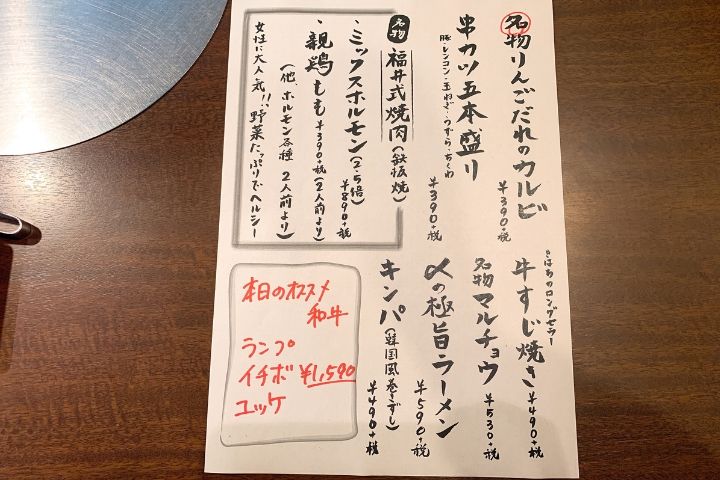 名物りんごだれのカルビ
¥390+税
串カツ五本盛り
豚・レンコン・玉ねぎ・うずら・ちくわ
¥390+税
名物
福井式焼肉(鉄板焼)
・ミックスホルモン(2.5倍)
¥890+税
・親鶏もも¥390+税(2人前より)
(他、ホルモン各種 2人前より)
女性に大人気!!野菜たっぷりでヘルシー
きはちのロングセラー
牛すじ焼き
¥490+税
名物マルチョウ
¥530+税
〆の極旨ラーメン
¥590+税
キンパ(韓国風巻きずし)
¥490+税
本日のオススメ
和牛
ランプ
イチボ ¥1,590
ユッケ